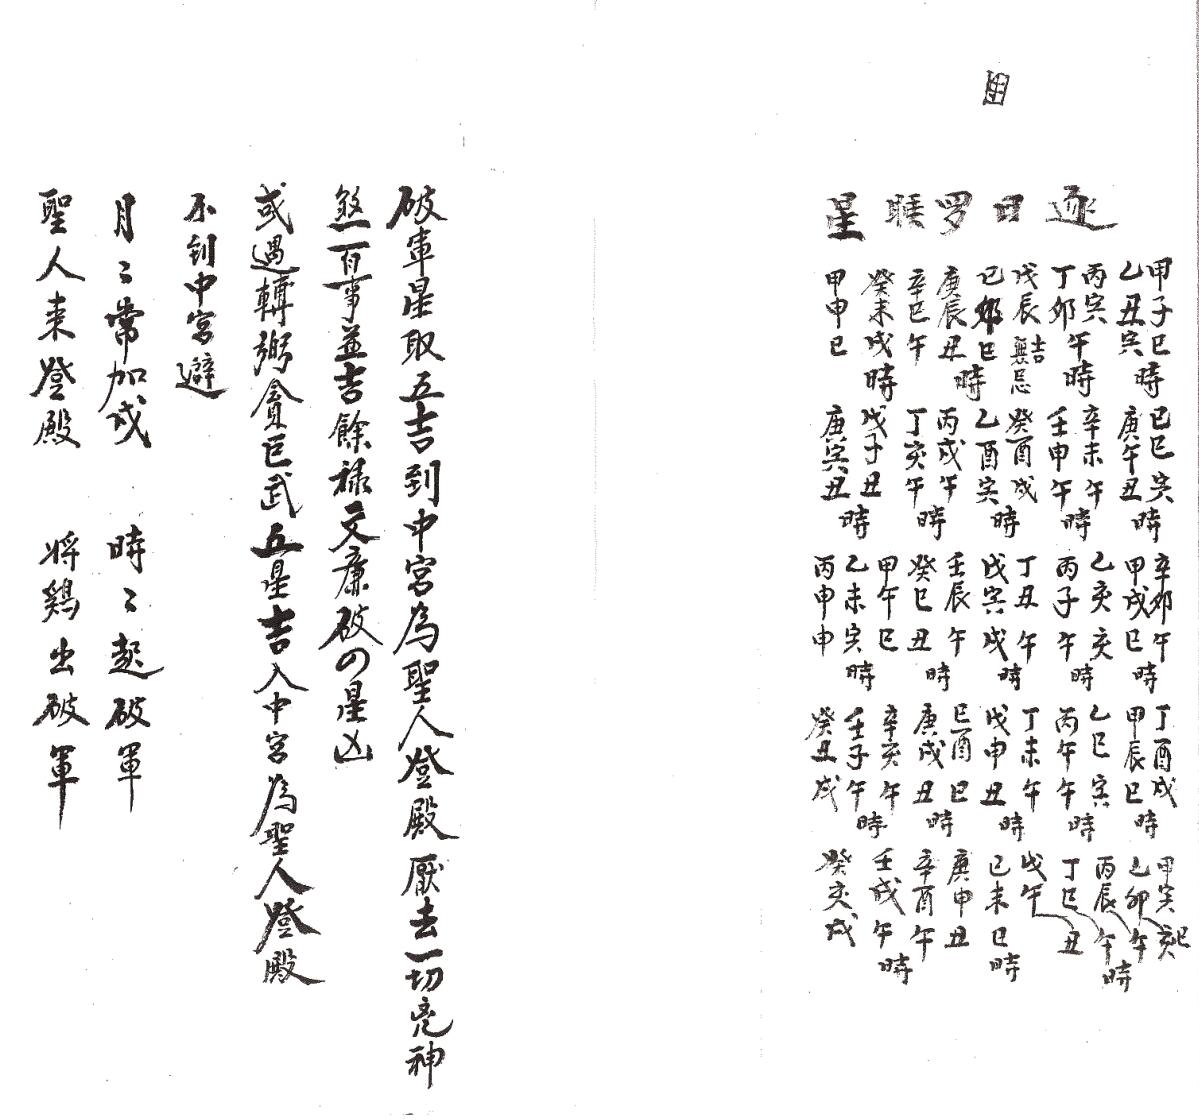 逐日罗睺星
甲子巳
乙丑寅時
丙寅
丁卯午時
戊辰吉無忌
己卯巳
庚辰丑時
辛巳午
癸未戌時
甲申巳
己巳亥
庚午丑時
辛未午
壬申午時
癸酉戌
乙酉寅時
丙戌午
丁亥午時
戊子丑
庚寅丑時
辛卯午
甲戌巳時
乙亥亥
丙子午時
丁丑午
戊寅戌時
壬辰午
癸巳丑時
甲午巳
乙未寅時
丙申申
丁酉戌
甲辰巳時
乙巳寅
丙午午時
丁未午
戊申丑時
己酉巳
庚戌丑時
辛亥午
壬子午時
癸丑戌
甲寅亥巳
乙卯午
丙辰午時
丁巳丑
戊午
己未巳時
庚申丑
辛酉午
壬戌午時
癸亥戌
破軍星取五吉到中宮為聖人登殿厭去一切兇神
煞一百事並吉餘祿文廉破の星凶
或遇轉弼貪巨武五星吉入中宮為聖人登殿
不到中宮避
月〻常加戌 時〻起破軍
聖人来登殿 將鷄出破軍